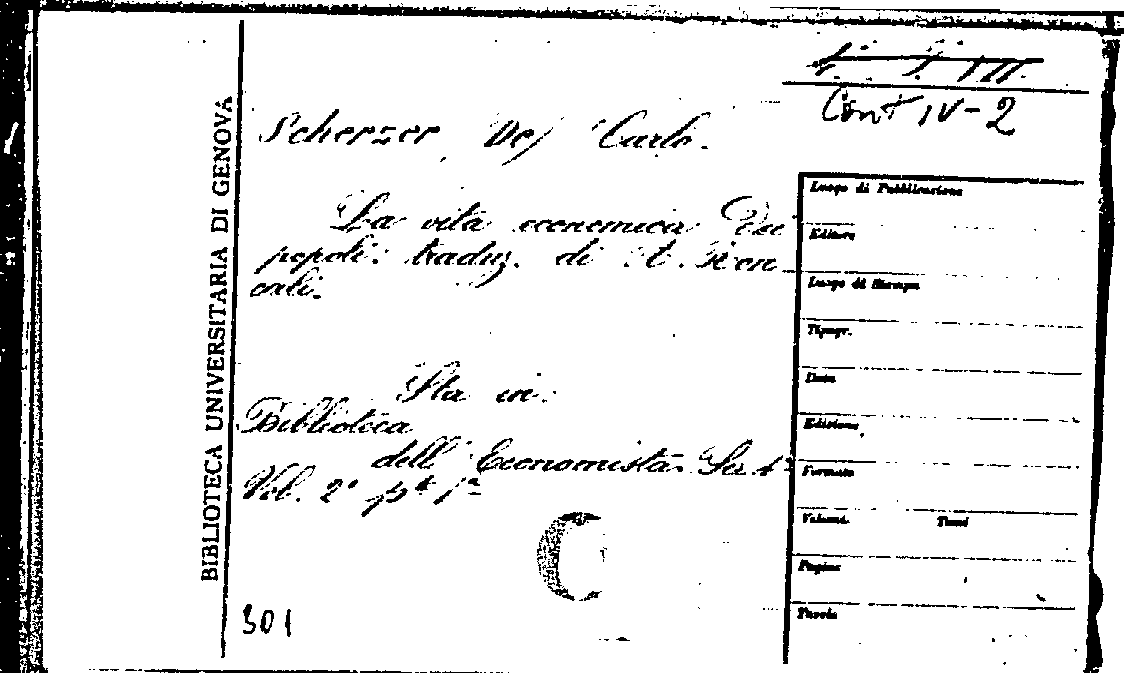 Cont IV-2
Scherzer, De, Carlo.
La vita economica Dei
popoli: traduz. di A. Ron
cali.
Sta in:
Biblioteca
dell' Economista. Ser. 4ª
Vol. 2º pte 1ª
301
BIBLIOTECA UNIVERSITARIA DI GENOVA
Luogo di Pubblicazione
Editore
Luogo di Stampa
Tipogr.
Data
Edizione
Formato
Volumi. Tomi
Pagine
Tavole